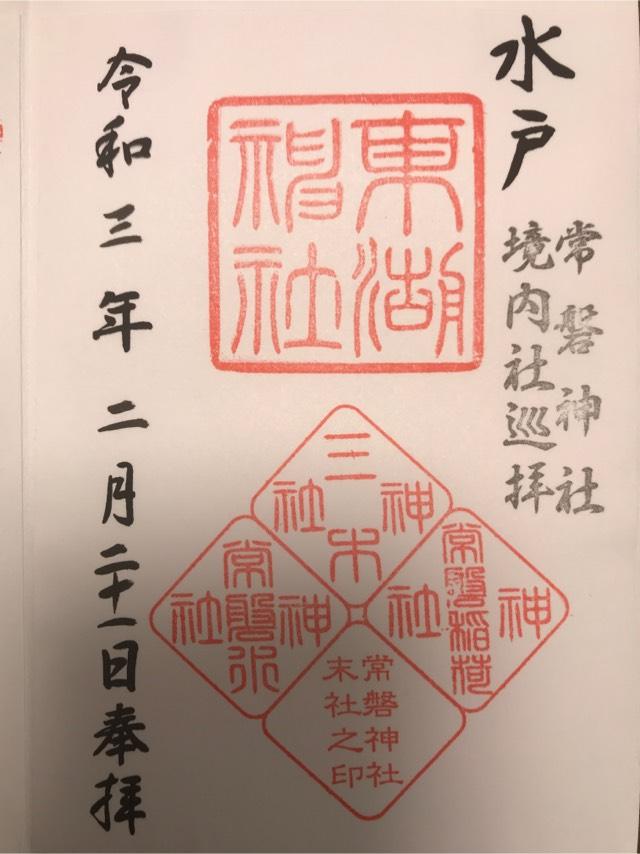 水戸
常磐神社
境内社巡拝
東湖
神社
三木神社
常磐稲荷神社
常磐水神社
常磐神社
末社之印
令和三年二月二十一日奉拝